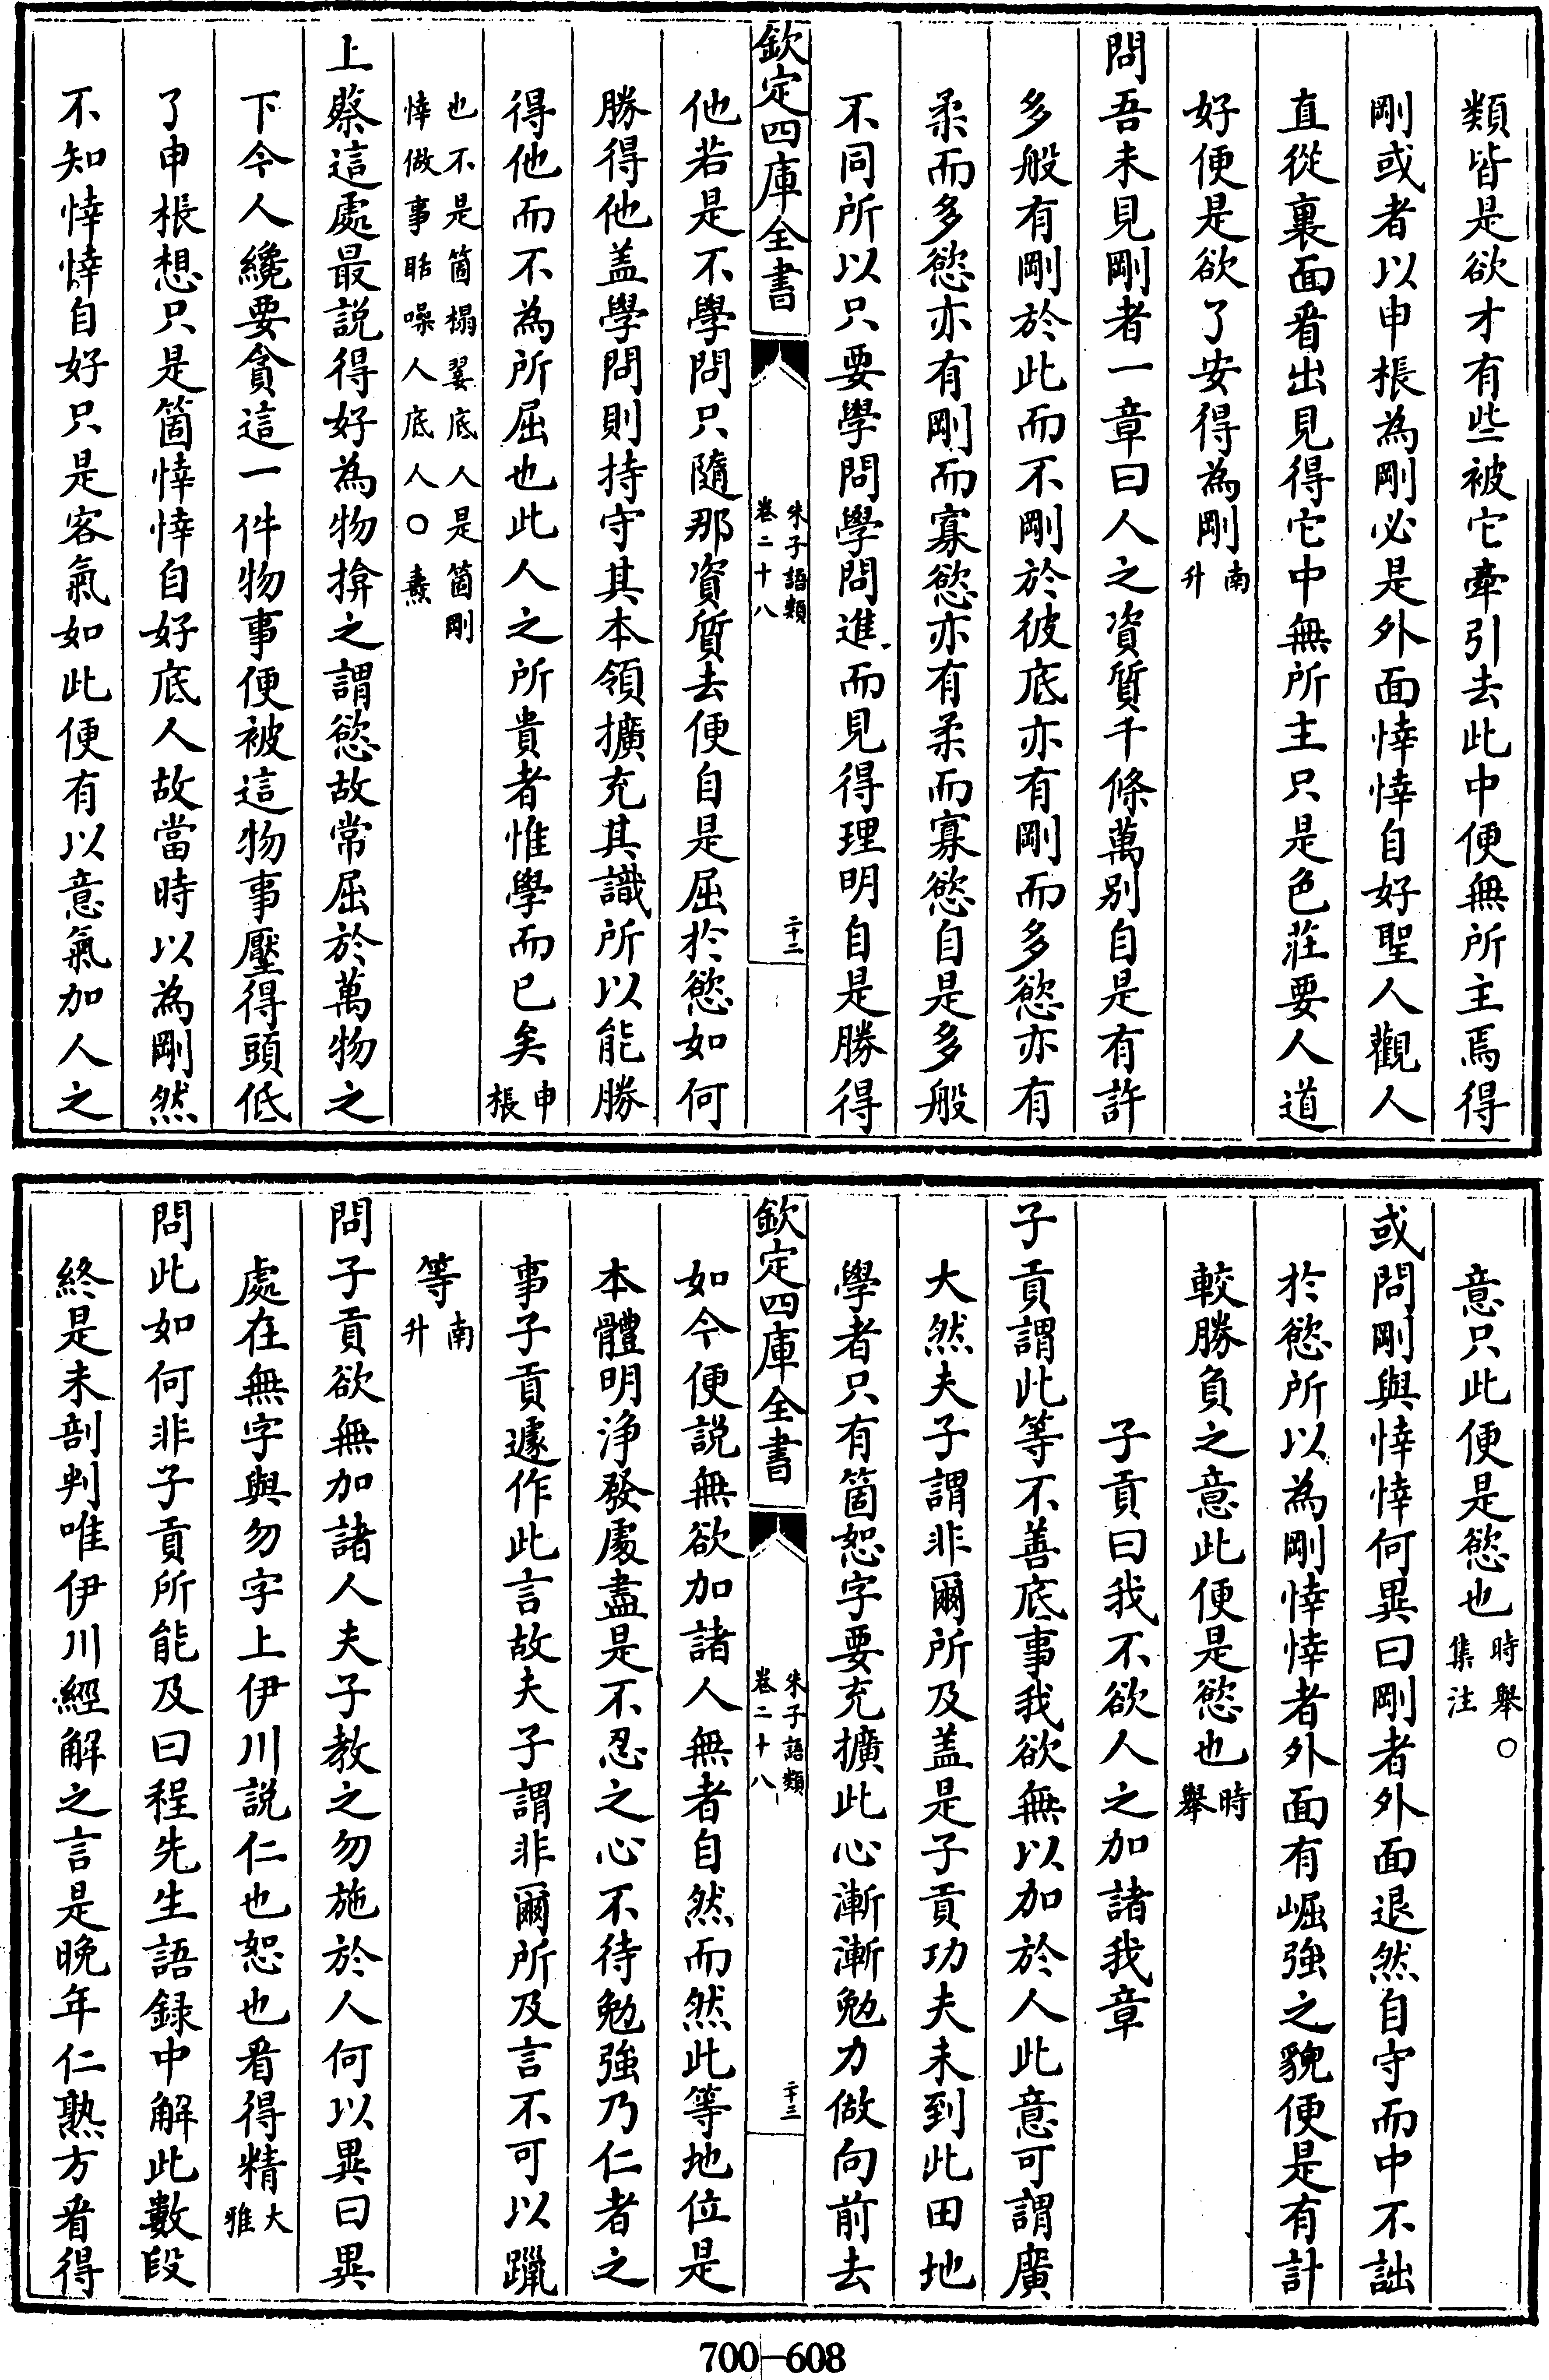 類皆是欲才有些被它牽引去此中便無所主焉得
剛或者以申棖為剛必是外面悻悻自好聖人觀人
直從裏面看出見得它中無所主只是色莊要人道
好便是欲了安得為剛南升
問吾未見剛者一章曰人之資質千條萬别自是有許
多般有剛於此而不剛於彼底亦有剛而多慾亦有
柔而多慾亦有剛而寡慾亦有柔而寡慾自是多般
不同所以只要學問學問進而見得理明自是勝得
欽定四庫全書
朱子語類
卷二十八
二十二
他若是不學問只隨那資質去便自是屈於慾如何
勝得他盖學問則持守其本領擴充其識所以能勝
得他而不為所屈也此人之所貴者惟學而已矣申棖
也不是箇榻翣底人是箇剛
悻做事聒噪人底人○燾
上蔡這處最説得好為物揜之謂慾故常屈於萬物之
下今人纔要貪這一件物事便被這物事壓得頭低
了申棖想只是箇悻悻自好底人故當時以為剛然
不知悻悻自好只是客氣如此便有以意氣加人之
意只此便是慾也時舉○集注
或問剛與悻悻何異曰剛者外面退然自守而中不詘
於慾所以為剛悻悻者外面有崛強之貌便是有計
較勝負之意此便是慾也時舉
子貢曰我不欲人之加諸我章
子貢謂此等不善底事我欲無以加於人此意可謂廣
大然夫子謂非爾所及盖是子貢功夫未到此田地
學者只有箇恕字要充擴此心漸漸勉力做向前去
欽定四庫全書
朱子語類
卷二十八
二十三
如今便説無欲加諸人無者自然而然此等地位是
本體明浄發處盡是不忍之心不待勉強乃仁者之
事子貢遽作此言故夫子謂非爾所及言不可以躐
等南升
問子貢欲無加諸人夫子教之勿施於人何以異曰異
處在無字與勿字上伊川説仁也恕也看得精大雅
問此如何非子貢所能及曰程先生語録中解此數段
終是未剖判唯伊川經解之言是晚年仁熟方看得
700-608